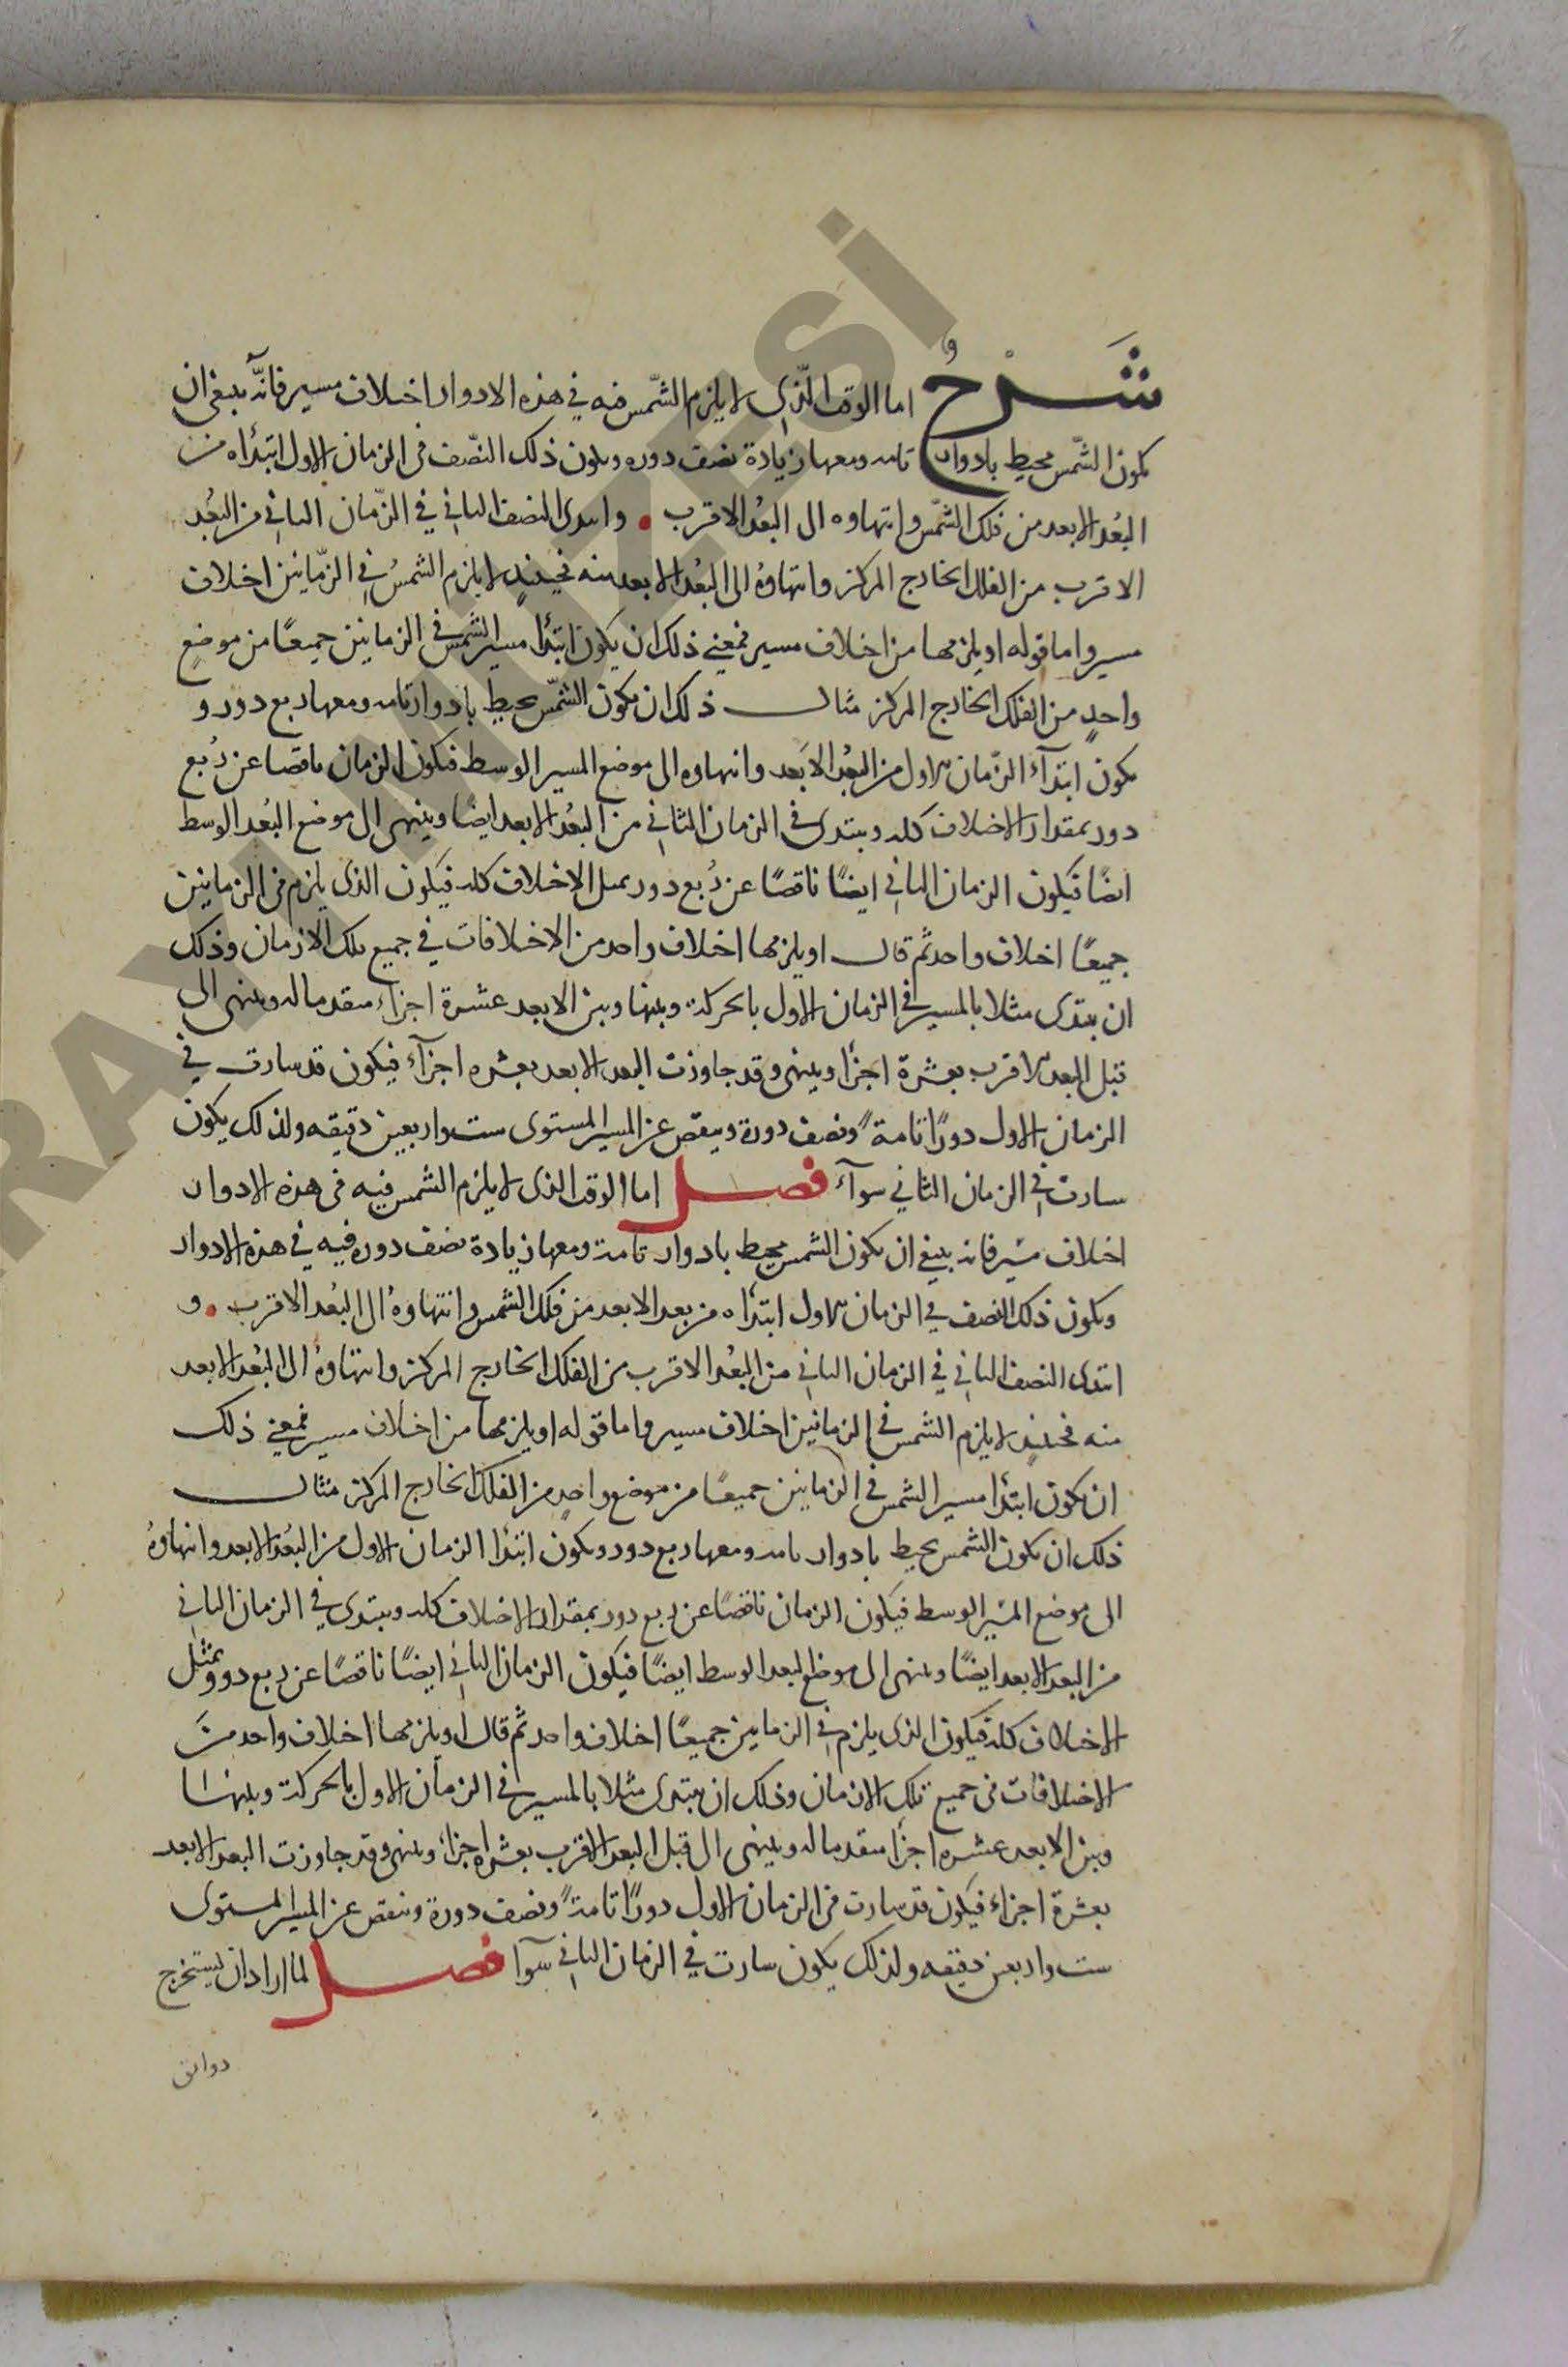 شَرْحٌ اما الوقت الّذي لا يلزم الشّمس فيه في هذه الادوار اختلاف مسير فانّه ينبغي ان
تكون الشّمس تحيط بادوار تامه ومعها زيادة نصف دوره ويكون ذلك النّصف في الزمان الاول ابتداه من
البُعد الابعد من فلك الشّمس وانتهاوه الى البعُد الاقرب • وابتدى النصف الثاني في الزّمان الثاني من البُعد
الاقرب من الفلك الخارج المركز وانتهاوهُ الى البُعد الابعد منه فحينئذٍ لا يلزم الشمسُ في الزّمانين اختلاف
مسير واما قوله او يلزمها من اختلاف مسير فمعنى ذلك ان يكون ابتدأ مسير الشمس في الزمانين جميعًا من موضعٍ
واحدٍ من الفلك الخارج المركز مثال ذلك ان تكون الشمّس تحيط بادوار تامه ومعها ربع دور و
يكون ابتدآء الزّمان الاول من البُعد الابَعد وانتهاوه الى موضع المسير الوسط فيكون الزمان ناقصا عن رُبع
دور بمقدار الاختلاف كله ويبتدى في الزمان الثاني من البعُد الابعد ايضا وينتهى الى موضع البُعد الوسط
ايضًا فيكون الزمان الثاني ايضًا ناقصًا عن رُبع دور بمثل الاختلاف كله فيكون الذى يلزم في الزمانين
جميعًا اختلاف واحد ثم قال او يلزمها اختلاف واحد من الاختلافات في جميع تلك الازمان وذلك
ان يبتدى مثلا بالمسير في الزمان الاول بالحركة وبينها وبين الابعد عشرة اجزاء متقدما له وينتهى الى
قبل البعد الاقرب بعشرة اجزأ وينتهى وقد جاوزت البعد الابعد بعشره اجزآء فيكون قد سارت في
الزمان الاول دورًا تامةً ونصف دورة وينقص عن المسير المستوى ست واربعين دقيقه ولذلك يكون
سارت في الزمان الثاني سوآء فصل اما الوقت الذى لا يلزم الشمس فيه في هذه الادوار
اختلاف مسير فانه ينبغي ان تكون الشمس تحيط بادوار تامة ومعها زيادة نصف دوره فيه في هذه الادوار
ويكون ذلك النصف في الزمان الاول ابتدأه من بعد الابعد من فلك الشمس وانتهاوهُ الى البُعد الاقرب • و
ابتدى النصف الثاني في الزمان الثاني من البعُد الاقرب من الفلك الخارج المركز وانتهاوهُ الى البُعد الابعد
منه فحينئذٍ لا يلزم الشمس في الزمانين اختلاف مسير واما قوله او يلزمها من اختلاف مسير فمعنى ذلك
ان يكون ابتدأ مسير الشمس في الزمانين جميعًا من موضع واحدٍ من الفلك الخارج المركز مثال
ذلك ان تكون الشمس تحيط بادوار تامه ومعها ربع دور ويكون ابتدأ الزمان الاول من البُعد الابعد وانتهاوهُ
الى موضع المسير الوسط فيكون الزمان ناقصًا عن ربع دور بمقدار الاختلاف كله ويبتدى في الزمان الثاني
من البعد الابعد ايضًا وينتهى الى موضع لبعد الوسط ايضًا فيكون الزمان الثاني ايضًا ناقصًا عن ربع دو وبمثل
الاختلاف كله فيكون الذى يلزم في الزمانين جميعًا اختلاف واحد ثم قال او يلزمها اختلاف واحد من
الاختلافات في جميع تلك الازمان وذلك ان يبتدى مثلا بالمسير في الزمان الاول بالحركة وبينها
وبين الابعد عشره اجزأ متقدما له وينتهى الى قبل البعد الاقرب بعشره اجزاء وينتهى وقد جاوزت البعد الابعد
بعشرة اجزاء فيكون قد سارت في الزمان الاول دورًا تامةً ونصف دورة وينقص عن المسير المستوى
ست واربعين دقيقه ولذلك يكون سارت في الزمان الثاني سوآ فصل لما اراد ان يستخرج